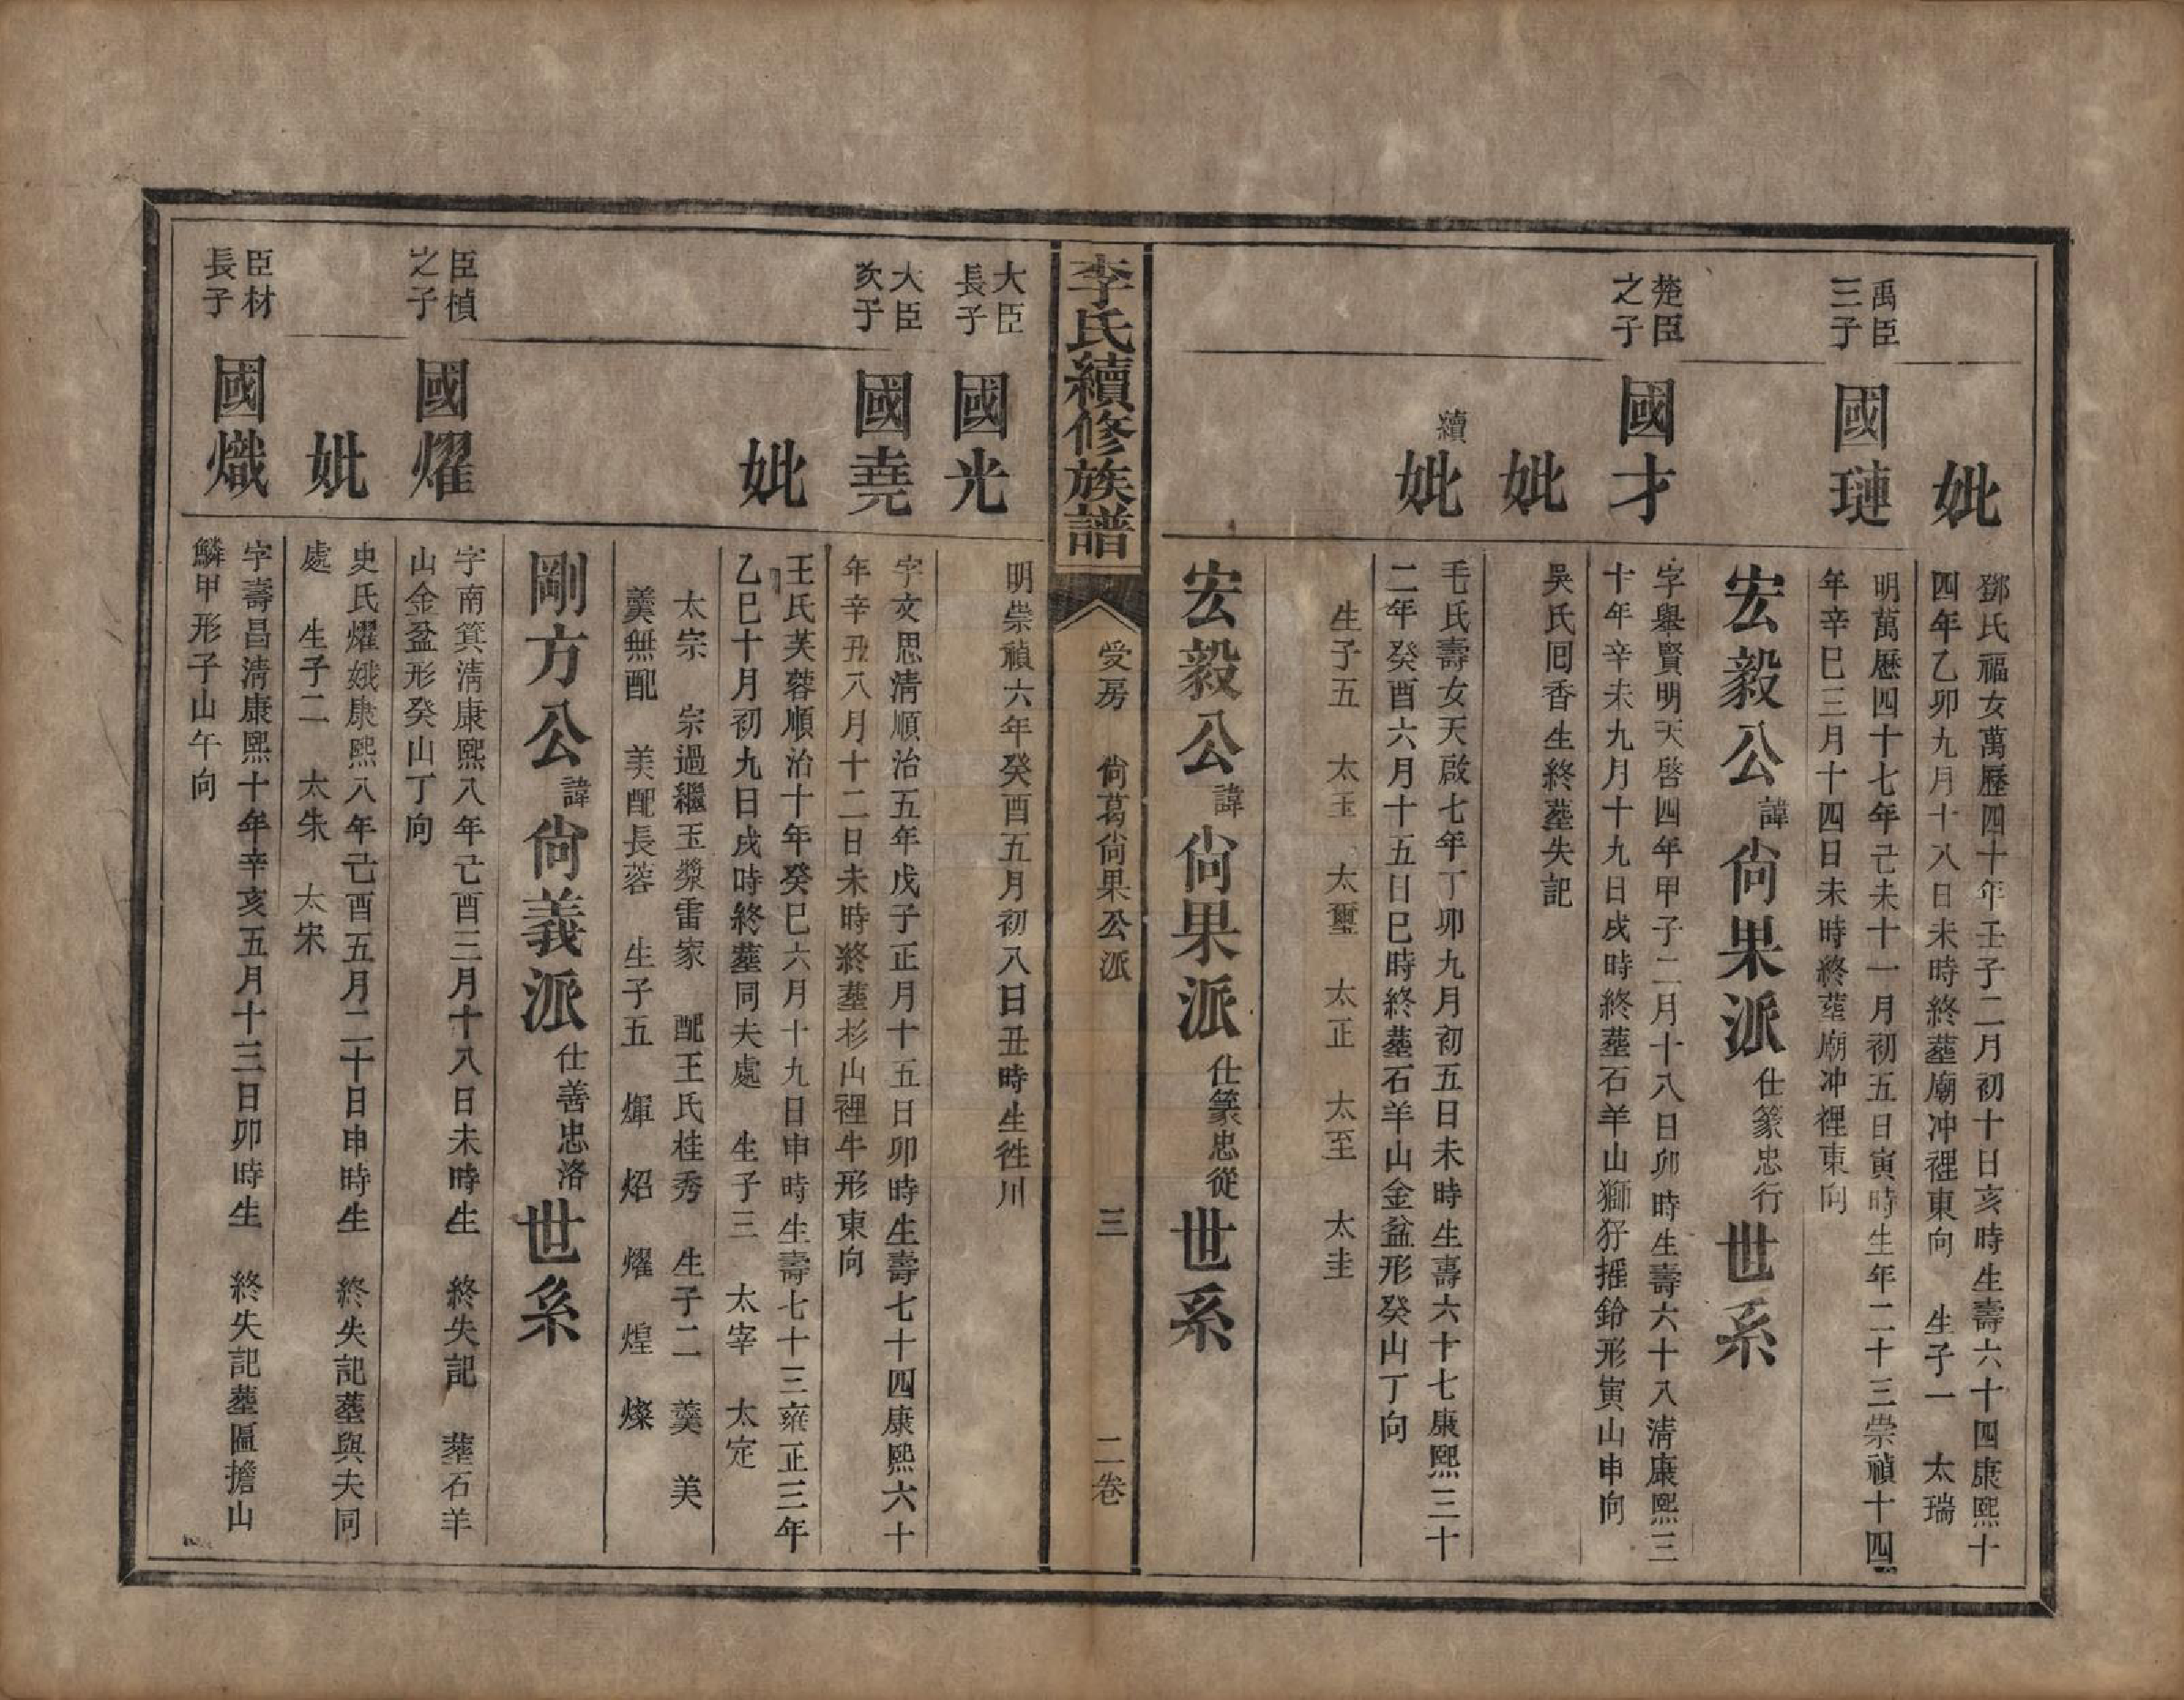 妣
鄧氏福女萬歷四十年壬子二月初十日亥時生壽六十四康熙十
四年乙卯九月十八日未時終塟廟冲裡東向　生子一　太瑞
禹臣
三子
國璉
明萬歷四十七年己未十一月初五日寅時生年二十三崇禎十四
年辛巳三月十四日未時終塟廟冲裡東向
宏毅公諱尙果派仕篆忠行世系
楚臣
之子
國才
字舉賢明天啓四年甲子二月十八日卯時生壽六十八清康熙三
十年辛未九月十九日戌時終塟石羊山獅犴搖鈴形寅山申向
妣
吳氏囘香生終塟失記
續
妣
毛氏壽女天啟七年丁卯九月初五日未時生壽六十七康熙三十
二年癸酉六月十五日巳時終塟石羊山金盆形癸山丁向
生子五　太玉　太璽　太正　太至　太圭
宏毅公諱尙果派仕篆忠從世系
李氏續修族譜
受房　尙葛尙果公派　三　二卷
大臣
長子
國光
明崇禎六年癸酉五月初八日丑時生徃川
大臣
次子
國堯
字文思清順治五年戊子正月十五日卯時生壽七十四康熙六十
年辛丑八月十二日未時終塟杉山裡牛形東向
妣
王氏芙蓉順治十年癸巳六月十九日申時生壽七十三雍正三年
乙巳十月初九日戌時終塟同夫處　生子三　太宰　太定
太宗　宗過繼玉漿雷家　配王氏桂秀　生子二　羮　美
羮無配　美配長蓉　生子五　煇　炤　燿　煌　燦
剛方公諱尙義派仕善忠洛世系
臣楨
之子
國燿
字南箕清康熙八年己酉三月十八日未時生　終失記　塟石羊
山金盆形癸山丁向
妣
史氏燿娥康熙八年己酉五月二十日申時生　終失記塟與夫同
處　生子二　太朱　太宋
臣材
長子
國熾
字壽昌清康熙十年辛亥五月十三日卯時生　終失記塟匾擔山
鱗甲形子山午向